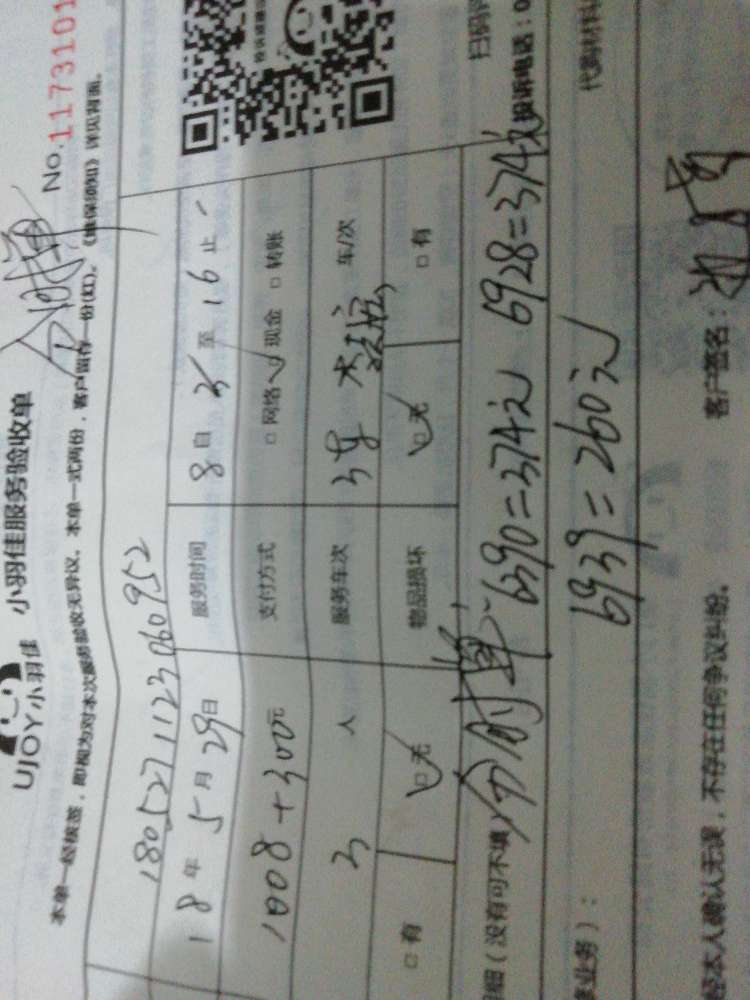 UJOY小羽佳 小羽佳服务验收单
No.1173101
分时单
本单一经核签,即视为对本次服务验收无异议。本单一式两份,客户留存一份(红)。《维保须知》详见背面。
180527112306​0952
18年5月29日 服务时间 8自 至16止
1008+300元 支付方式 □网络√□现金 □转账
3人 服务车次 车/次
□有 □无 物品损坏 □无 □有
细(没有可不填) 分时单 6390=374元 6928=374元
6939=260元
业务):
扫码
投诉电话:0
代购材料
经本人确认无误,不存在任何争议纠纷。 客户签名: